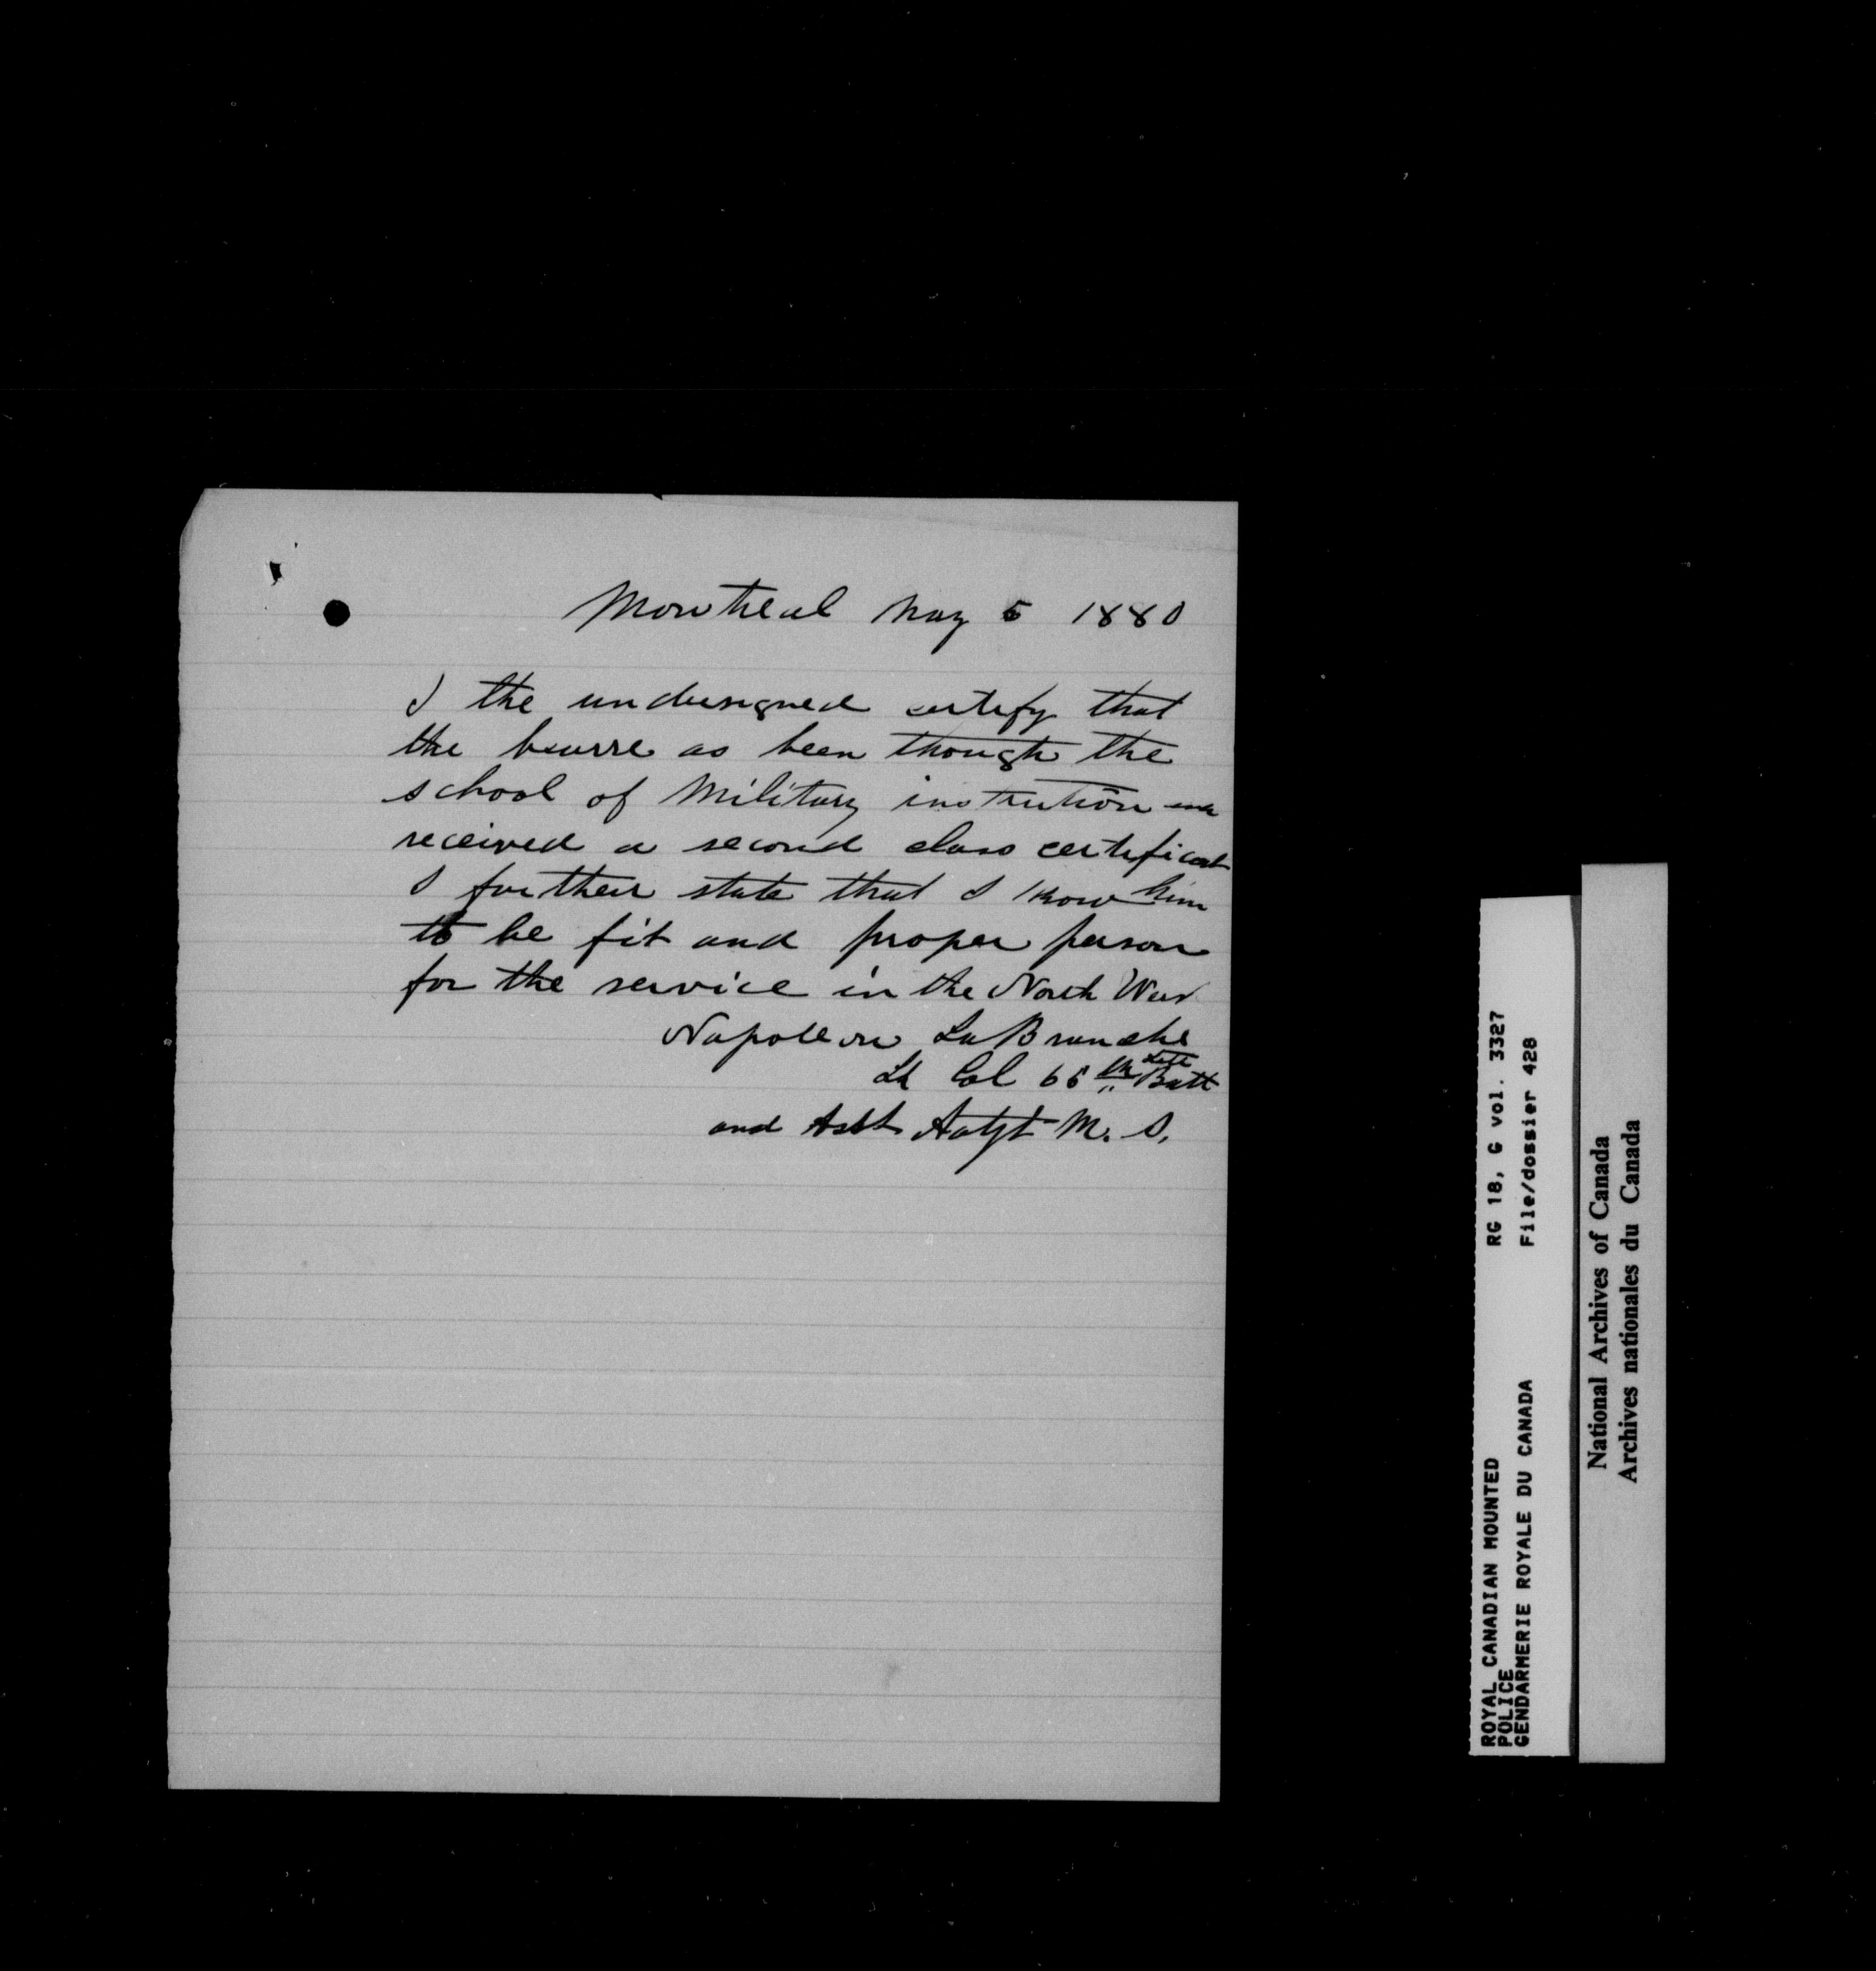 Montreal May 5 1880
I the undersigned certify that
the bearre as been though the
school of Military instrution and
received a second class certificat
I further state that I know him
to be fit and proper person
for the service in the North West
Napoleon LaBranche
Lt Col 65th late Batt
and Asst Adjt M. S.
ROYAL CANADIAN MOUNTED
POLICE
GENDARMERIE ROYALE DU CANADA
RG 18, G vol. 3327
File/dossier 428
National Archives of Canada
Archives nationales du Canada